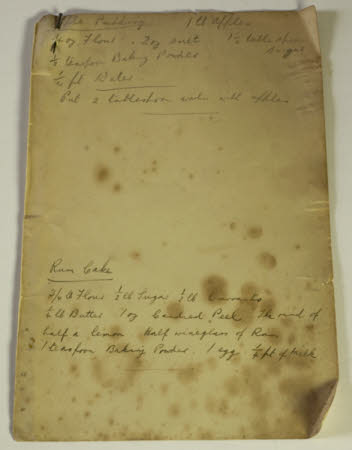 Pudding 1 lb apples
oz Flour. 2oz suet 1½ table spoon
sugar
½ teaspoon Baking Powder
pt Water
Put 2 tablespoon water with apples
Rum Cake
3/4 lb Flour ½ lb Sugar ½ lb Currants
lb Butter 1 oz Candied Peel The rind of
half a lemon Half wineglass of Rum
1 teaspoon Baking Powder. 1 egg pt of milk